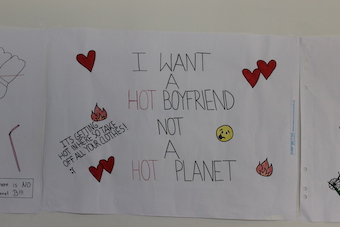 I WANT
A
HOT BOYFRIEND
NOT
A
HOT PLANET
IT'S GETTING
HOT IN HERE SO TAKE
OFF ALL YOUR CLOTHES!
is NO